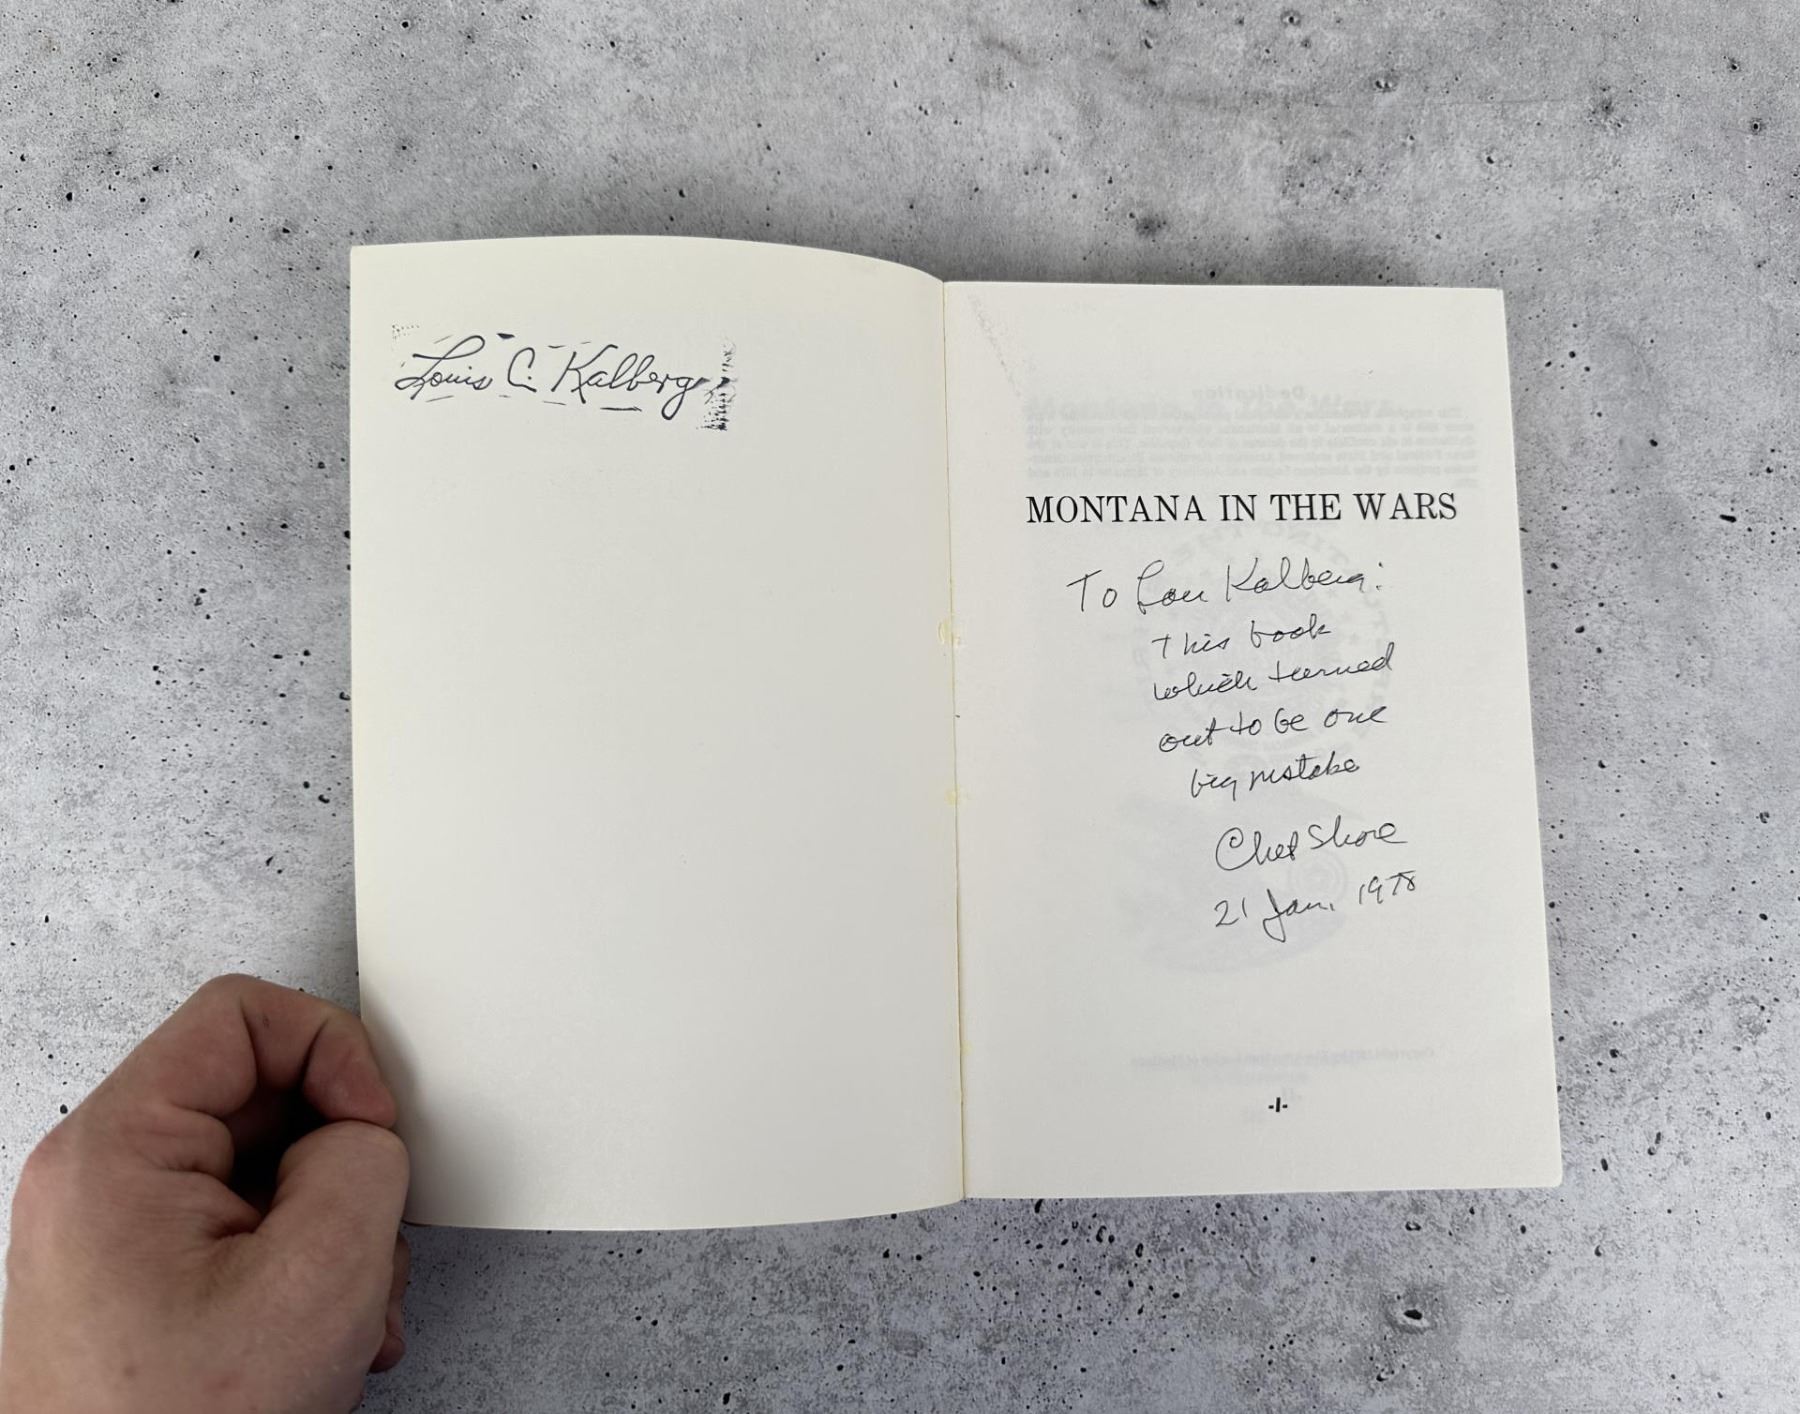 Louis C. Kalberg
Dedication
MONTANA IN THE WARS
To Lou Kalberg:
This book
which turned
out to be one
big mistake
Chet Shore
21 Jan, 1978
-1-